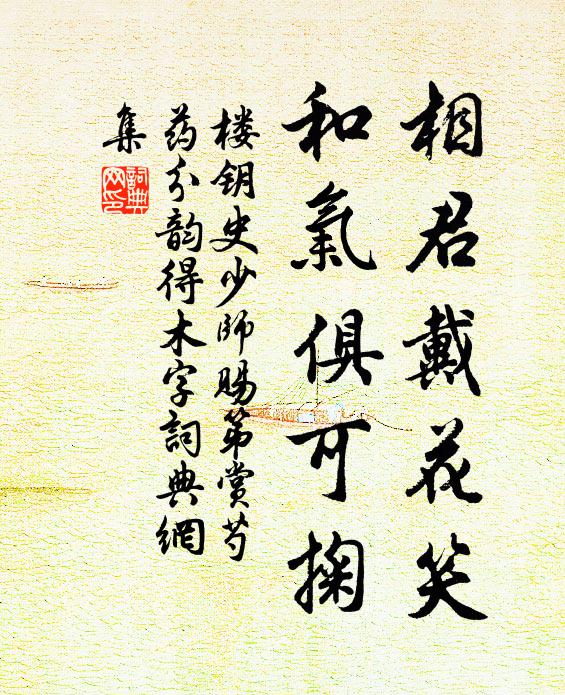 相君戴花笑
和氣俱可掬
楼钥史少師賜第賞芍
药分韵得木字詞典網
集
詞典
网印